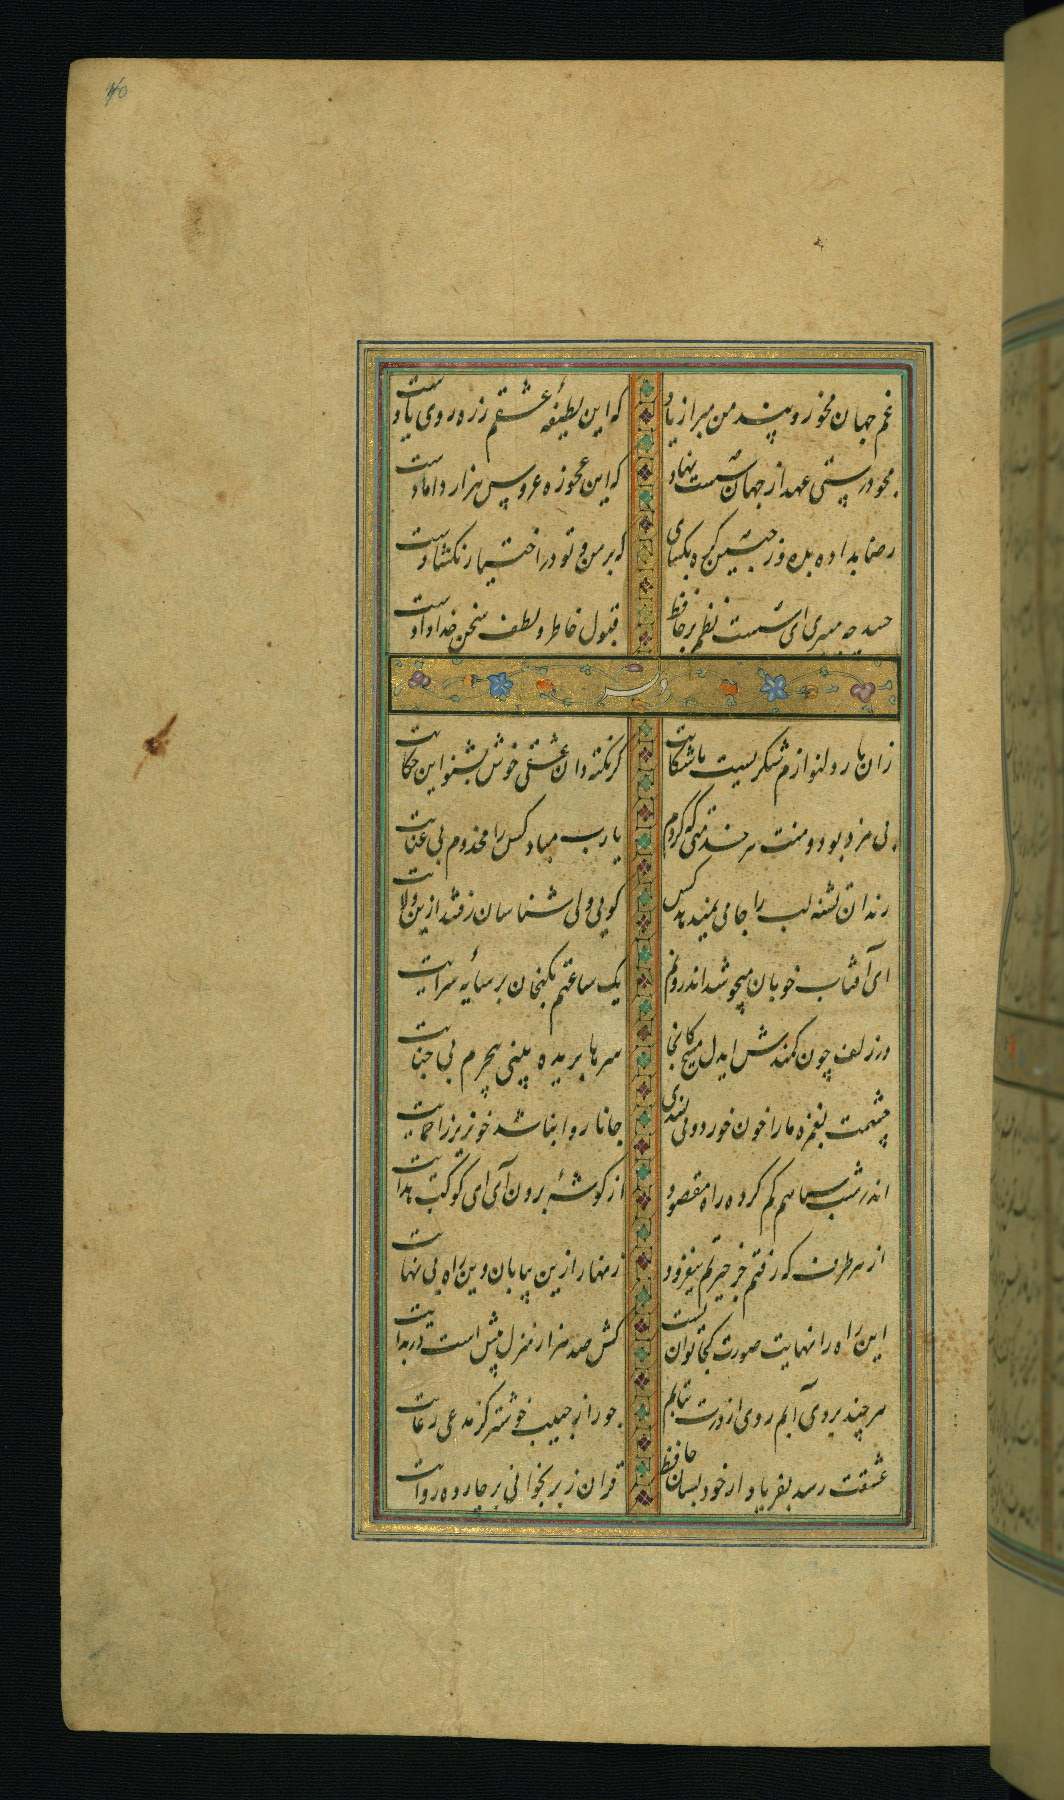 غم جهان مخور و پند من مبر از یاد
که این لطیفه عشقم ز ره روی یادست
مجو درستی عهد از جهان سست نهاد
که این عجوزه عروس هزار دامادست
رضا بداده بده وز جبین گره بکشای
که بر من و تو در اختیار نکشادست
حسد چه میبری ای سست نظم بر حافظ
قبول خاطر و لطف سخن خدادادست
وله
زان یار دلنوازم شکریست با شکایت
گر نکته دان عشقی خوش بشنو این حکایت
بی مزد بود و منت هر خدمتی که کردم
یارب مباد کس را مخدوم بی عنایت
رندان تشنه لب را جامی نمیدهد کس
کویی ولی شناسان رفتند ازین ولایت
ای آفتاب خوبان میجوشد اندرونم
یک ساعتم بکنجان بر سایه سرایت
در زلف چون کمندش ایدل مپیچ کانجا
سرها بریده بینی بی جرم بی جنایت
چشمت بغمزه ما را خون خورد و می پسندی
جانا روا نباشد خونریز را حمایت
اندر شب سیاهم کم کرده راه مقصود
از کوشه برون آی ای کوکب هدایت
از هر طرف که رفتم جز حیرتم نیفزود
زنهار ازین بیابان وین راه بی نهایت
این راه را نهایت صورت کجا توان بست
کش صد هزار منزل بیش است در بدایت
هر چند بردی آبم روی از درت نتابم
جور از حبیب خوشتر کز مدعی رعایت
عشقت رسد بفریاد ار خود بسان حافظ
قران ز بر بخوانی بر چارده روایت